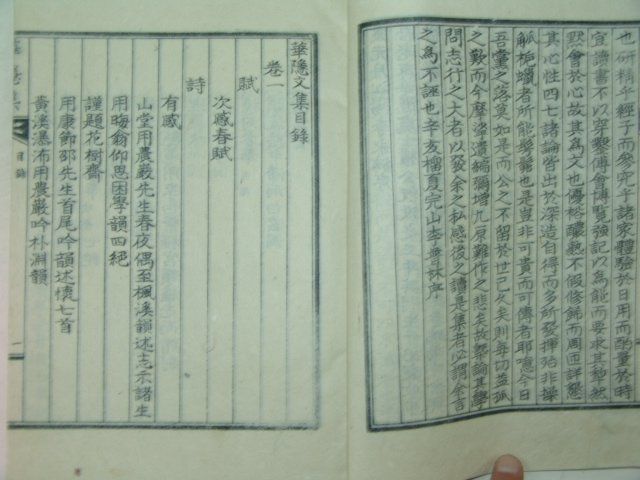 也研精乎經子而泉穷乎諸家體驗於日用而酌量於時
宜讀書不以穿鑿傅會博覽強記以爲能而要求其犂然
默會於心故其爲文也優裕醲熟不假修飾而周匝詳慤
其心性四七諸論皆出於深造自得而多所發揮殆非操
觚梔蠟者所能髣髴也是豈非可貴而可傳者耶噫今日
吾黨之落莫如是而公之不留於世已久矣則每切益孤
之歎而今摩挲遺編彌增九原難作之悲矣故畧論其學
問志行之大者以發余之私感後之讀是集者必謂余言
之爲不誣也辛亥榴夏完山李 序
華隱文集目錄
卷一
賦
次感春賦
詩
有感
山堂用農巖先生春夜偶至楓溪韻述志示諸生
用晦翁仰思困學韻四絕
謹題花樹齋
用康節邵先生首尾吟韻述懷七首
黃溪瀑沛用農巖吟朴淵韻
目錄
一